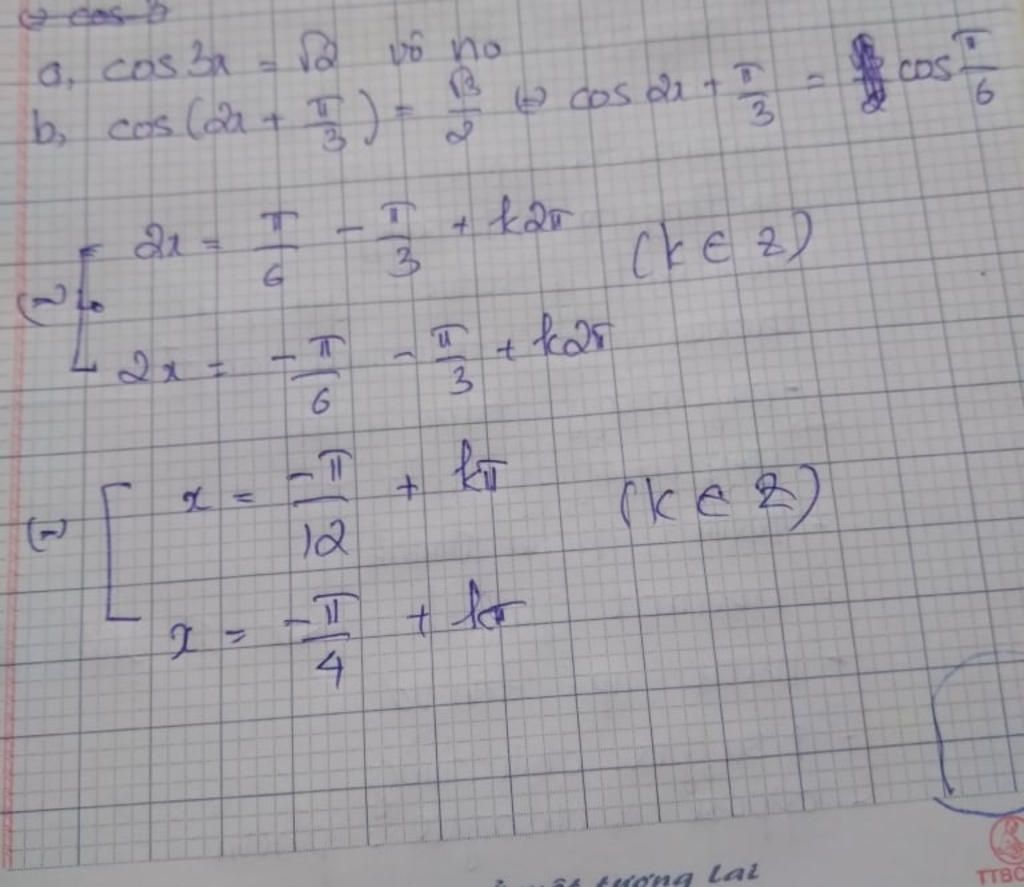 ⇔ cos b
a, cos 3x = √2 vô no
b, cos(2x + π/3) = √3/2 ⇔ cos 2x + π/3 = cos π/6
⇔ [ 2x = π/6 - π/3 + k2π (k ∈ Z)
2x = -π/6 - π/3 + k2π
⇔ [ x = -π/12 + kπ (k ∈ Z)
x = -π/4 + kπ
tương lai
TTBC